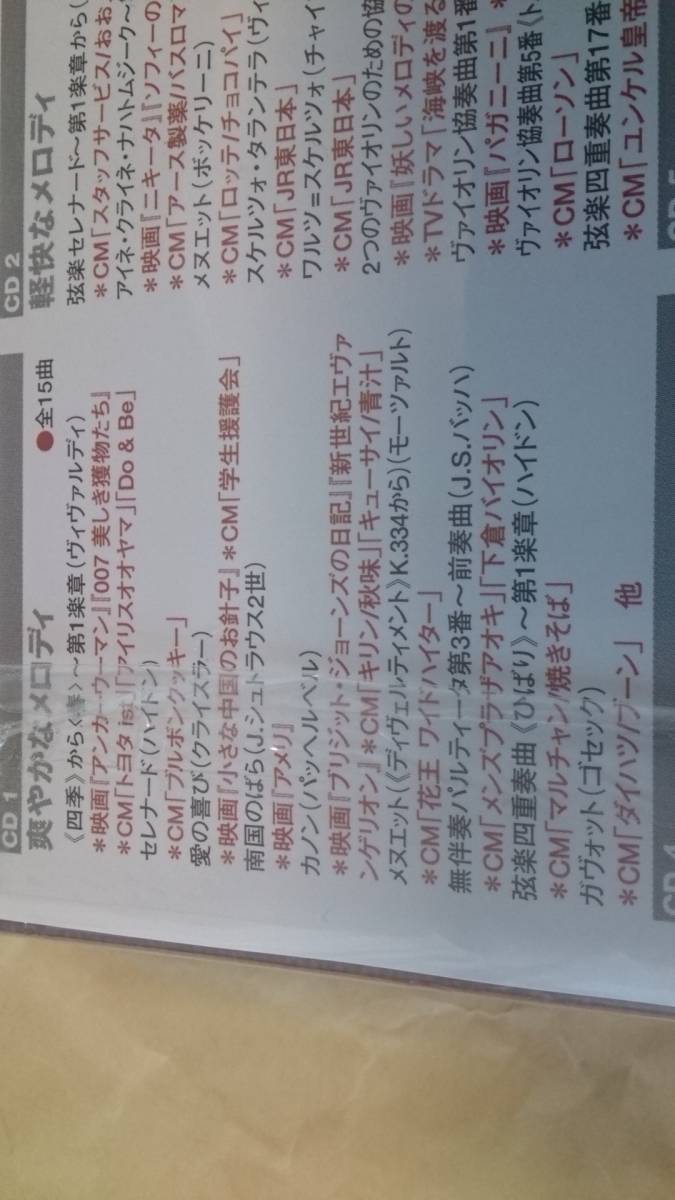 CD 1
爽やかなメロディ ●全15曲
《四季》から〈春〉〜第1楽章(ヴィヴァルディ)
＊映画『アンカーウーマン』『007 美しき獲物たち』
＊CM「トヨタ ist」「アイリスオオヤマ」「Do & Be」
セレナード(ハイドン)
＊CM「ブルボンクッキー」
愛の喜び(クライスラー)
＊映画『小さな中国のお針子』＊CM「学生援護会」
南国のばら(J.シュトラウス2世)
＊映画『アメリ』
カノン(パッヘルベル)
＊映画『ブリジット・ジョーンズの日記』『新世紀エヴァ
ンゲリオン』＊CM「キリン/秋味」「キューサイ/青汁」
メヌエット(《ディヴェルティメント》K.334から)(モーツァルト)
＊CM「花王 ワイドハイター」
無伴奏パルティータ第3番〜前奏曲(J.S.バッハ)
＊CM「メンズプラザアオキ」「下倉バイオリン」
弦楽四重奏曲《ひばり》〜第1楽章(ハイドン)
＊CM「マルチャン/焼きそば」
ガヴォット(ゴセック)
＊CM「ダイハツ/ブーン」 他
CD 2
軽快なメロディ
弦楽セレナード〜第1楽章から(
＊CM「スタッフサービス/おお
アイネ・クライネ・ナハトムジーク〜
＊映画『ニキータ』『ソフィーの
＊CM「アース製薬/バスロマ
メヌエット(ボッケリーニ)
＊CM「ロッテ/チョコパイ」
スケルツォ・タランテラ(ヴィ
＊CM「JR東日本」
ワルツ=スケルツォ(チャイ
＊CM「JR東日本」
2つのヴァイオリンのための協
＊映画『妖しいメロディの
＊TVドラマ「海峡を渡る
ヴァイオリン協奏曲第1番
＊映画『パガニーニ』＊
ヴァイオリン協奏曲第5番《ト
＊CM「ローソン」
弦楽四重奏曲第17番
＊CM「ユンケル皇帝
CD 4
CD 5